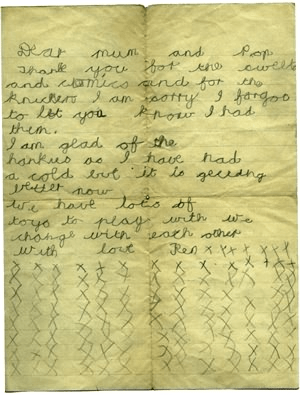 Dear mum and Pop
Thank you for the sweets
and comics and for the
knickers I am sorry I forgoo
to let you know I had
them.
I am glad of the
hankies as I have had
a cold but it is geeting
better now
We have lots of
toys to play with we
change with each other
with love Ren x x x x x x x